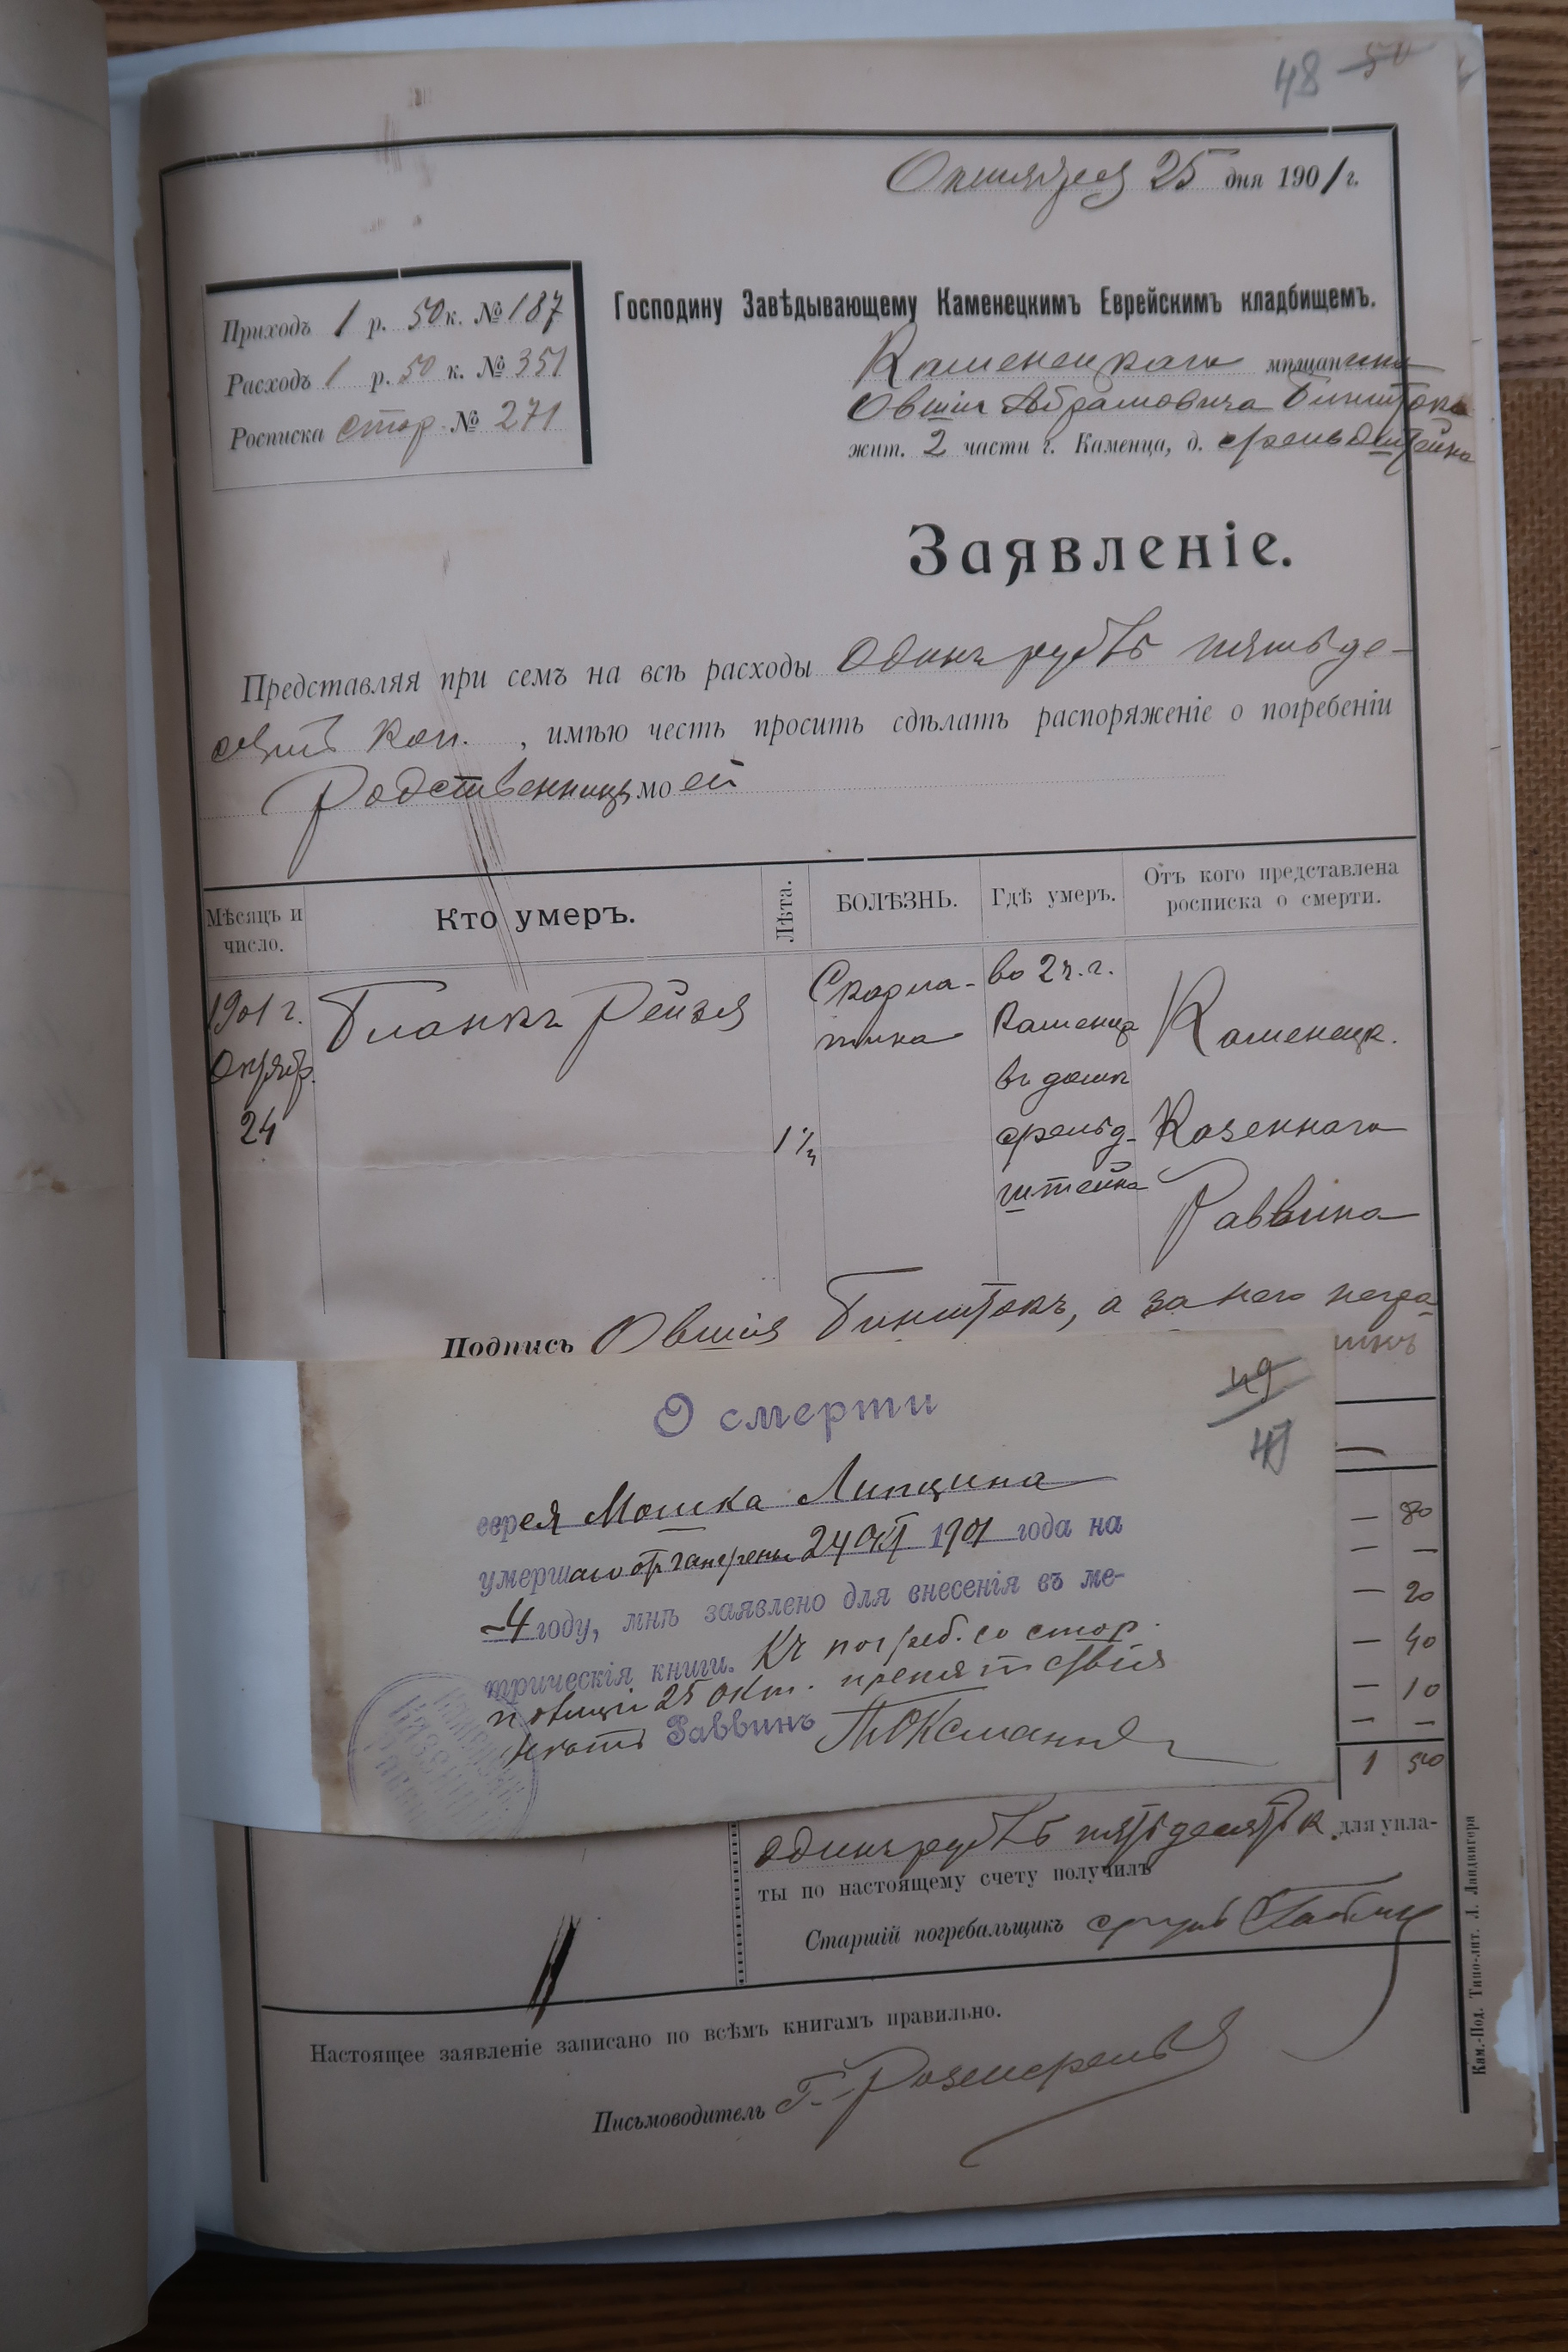 48 50
Октября 25 дня 1901 г.
Приходъ 1 р. 50 к. № 187
Расходъ 1 р. 50 к. № 351
Росписка стор. № 271
Господину Завѣдывающему Каменецкимъ Еврейскимъ кладбищемъ.
Каменецкаго мѣщанина
Овшии Абрамовича Бинштока
жит. 2 части г. Каменца, д. Фельдштейна
Заявленіе.
Представляя при семъ на всѣ расходы одинъ рубль пятьде-
сятъ коп. , имѣю честь просить сдѣлать распоряженіе о погребеніи
Родственницы моей
Мѣсяцъ и число.
Кто умеръ.
Лѣта.
БОЛѢЗНЬ.
Гдѣ умеръ.
Отъ кого представлена росписка о смерти.
1901 г.
Октябр.
24
Бланкъ Рейзя
1 1/2
Скарла-
тина
во 2 ч. г.
Каменца
въ домѣ
Фельд-
штейна
Каменецк.
Казеннаго
Раввина
Подпись Овшія Бинштокъ, а за него негра-
О смерти
49
47
еврея Мошка Липцина
умершаго отъ гангрены 24 окт 1901 года на
4 году, мнѣ заявлено для внесенія въ ме-
трическія книги. Къ погреб. со стор.
полиціи 25 окт. препятствія
нѣтъ Раввинъ
— 80
— —
— 20
— 40
— 10
— —
1 50
одинъ рубль пятьдесятъ к. для упла-
ты по настоящему счету получилъ
Старшій погребальщикъ
Настоящее заявленіе записано по всѣмъ книгамъ правильно.
Письмоводитель Г. Розенфельд
Кам.-Под. Типо-лит. Л. Ландвигера